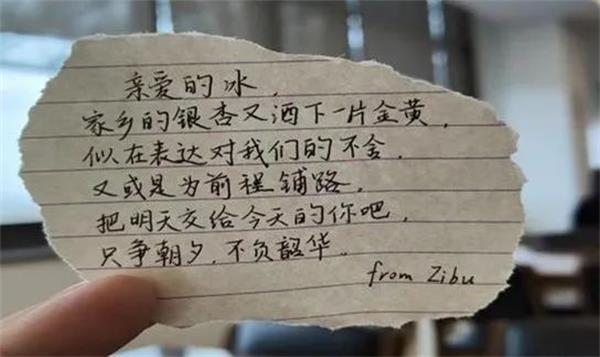 亲爱的冰，
家乡的银杏又洒下一片金黄，
似在表达对我们的不舍，
又或是为前程铺路，
把明天交给今天的你吧，
只争朝夕，不负韶华。
from Zibu